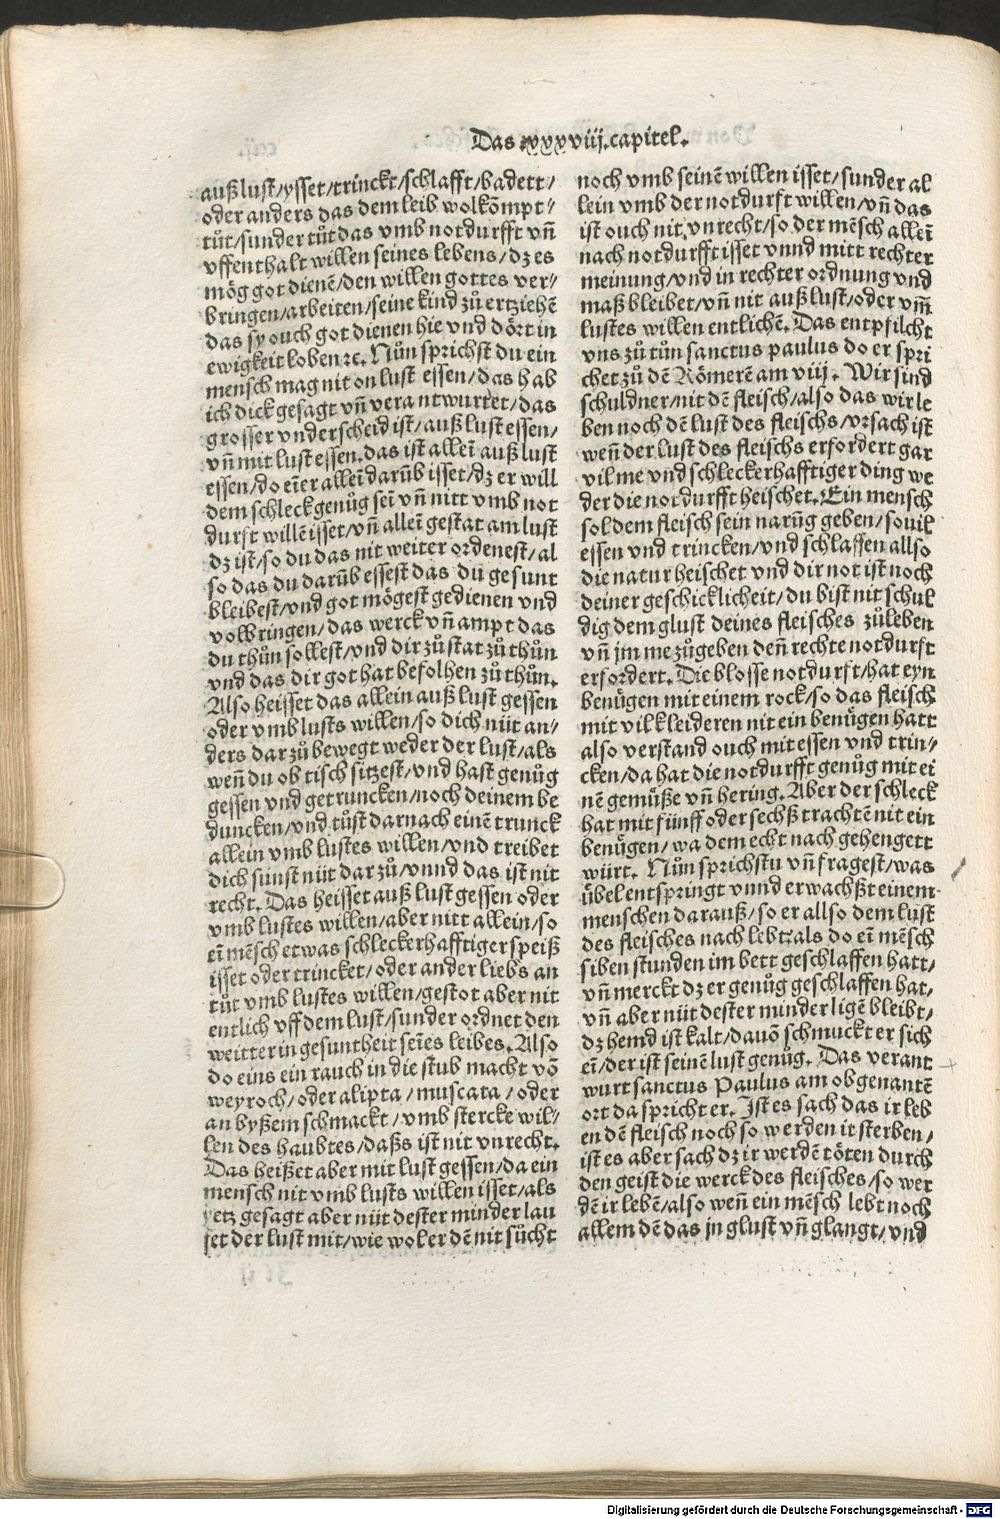 Das xxxviij.capitel.
außlust/ysset/trinckt/schlafft/badett/
oder anders das dem leib wolkõmpt/
tůt/sunder tůt das vmb notdurfft vñ
vffenthalt willen seines lebens/dz es
mög got dienẽ/den willen gottes ver/
bringen/arbeiten/seine kind zů ertziehẽ
das sy ouch got dienen hie vnd dört in
ewigkeit loben ⁊c. Nůn sprichst du ein
mensch mag nit on lust essen/das hab
ich dick gesagt vñ verantwurtet/das
grosser vnderscheid ist/auß lust essen/
vñ mit lust essen.das ist alleĩ auß lust
essen/do eĩer alleĩ darũb isset/dz er will
dem schleck genůg seĩ vñ nitt vmb not
durft willẽ isset/vñ alleĩ gestat am lust
dz ist/so du das nit weiter ordenest/al
so das du darũb essest das du gesunt
bleibest/vnd got mögest gedienen vnd
volbringen/das werck vñ ampt das
du thůn sollest/vnd dir zůstat zů thůn
vnd das dir got hat befolhen zů thůn.
Also heisset das allein auß lust gessen
oder vmb lusts willen/so dich nüt an/
ders darzů bewegt weder der lust/als
weñ du ob tisch sitzest/vnd hast genůg
gessen vnd getruncken/noch deinem be
duncken/vnd tůst darnach einẽ trunck
allein vmb lustes willen/vnd treibet
dich sunst nüt darzů/vnnd das ist nit
recht. Das heisset auß lust gessen oder
vmb lustes willen/aber nitt allein/so
eĩ mẽsch etwas schleckerhafftiger speiß
isset oder trincket/oder ander liebs an
tůt vmb lustes willen/gestot aber nit
entlich vff dem lust/sunder ordnet den
weitter in gesuntheit seĩes leibes. Also
do eins ein rauch in die stub macht võ
weyroch/oder alipta/muscata/oder
an byßem schmackt/vmb stercke wil/
len des haubtes/daßs ist nit vnrecht.
Das heißet aber mit lust gessen/da ein
mensch nit vmb lusts willen isset/als
yetz gesagt aber nüt dester minder lau
fet der lust mit/wie wol er dẽ nit sůcht
noch vmb seinẽ willen isset/sunder al
lein vmb der notdurft willen/vñ das
ist ouch nit vnrecht/so der mẽsch alleĩ
nach notdurfft isset vnnd mitt rechter
meinung/vnd in rechter ordnung vnd
maß bleibet/vñ nit auß lust/oder vm̃
lustes willen entlichẽ. Das entpfilcht
vns zů tůn sanctus paulus do er spri
chet zů dẽ Rõmerẽ am viij. Wir sind
schuldner/nit dẽ fleisch/also das wir le
ben noch dẽ lust des fleischs/vrsach ist
weñ der lust des fleischs erfordert gar
vil me vnd schleckerhafftiger ding we
der die notdurfft heischet. Ein mensch
sol dem fleisch sein narũg geben/souil
essen vnd trincken/vnd schlaffen allso
die natur heischet vnd dir not ist noch
deiner geschicklicheit/du bist nit schul
dig dem glust deines fleisches zůleben
vñ jm me zůgeben deñ rechte notdurft
erfordert. Die blosse notdurft/hat eyn
benügen mit einem rock/so das fleisch
mit vil kleideren nit ein benügen hatt
also verstand ouch mit essen vnd trin/
cken/da hat die notdurfft genůg mit ei
nẽ gemüße vñ hering. Aber der schleck
hat mit fünff oder sechß trachtẽ nit ein
benügen/wa dem echt nach gehengett
würt. Nůn sprichstu vñ fragest/was
übel entspringt vnnd erwachßt einem
menschen darauß/so er allso dem lust
des fleisches nach lebt:als do eĩ mẽsch
siben stunden im bett geschlaffen hatt/
vñ merckt dz er genůg geschlaffen hat/
vñ aber nüt dester minder ligẽ bleibt/
dz hemd ist kalt/dauõ schmuckt er sich
eĩ/der ist seinẽ lust genůg. Das verant
wurt sanctus Paulus am obgenantẽ
ort da spricht er. Ist es sach das ir leb
en dẽ fleisch noch so werden ir sterben/
ist es aber sach dz ir werdẽ töten durch
den geist die werck des fleisches/so wer
dẽ ir lebẽ/also weñ ein mẽsch lebt noch
allem dẽ das jn glust vñ glangt/vnd
Digitalisierung gefördert durch die Deutsche Forschungsgemeinschaft - DFG